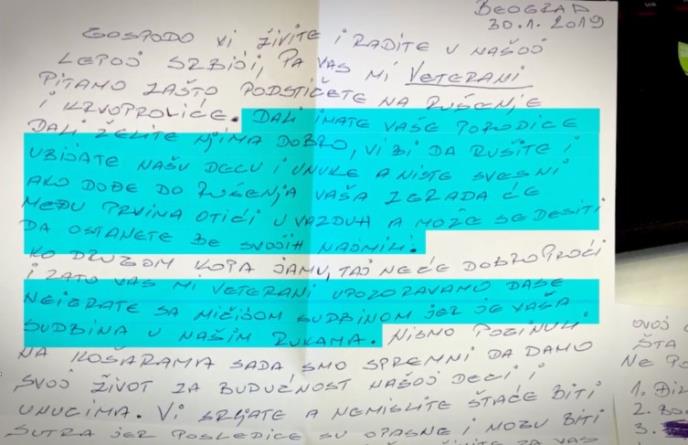 BEOGRAD
30.1.2019
GOSPODO VI ŽIVITE I RADITE U NAŠOJ
LEPOJ SRBIJI, PA VAS MI VETERANI
PITAMO ZAŠTO PODSTIČETE NA RUŠENJE
I KRVOPROLIĆE. DALI IMATE VAŠE PORODICE
DALI ŽELITE NJIMA DOBRO, VI BI DA RUŠITE I
UBIJATE NAŠU DECU I UNUKE A NISTE SVESNI
AKO DOĐE DO RUŠENJA VAŠA ZGRADA ĆE
MEĐU PRVIMA OTIĆI U VAZDUH A MOŽE SE DESITI
DA OSTANETE BEZ SVOJIH NAJMILI.
KO DRUGOM KOPA JAMU, TAJ NEĆE DOBRO PROĆI
I ZATO VAS MI VETERANI UPOZORAVAMO DA SE
NEIGRATE SA NIČIJOM SUDBINOM JER JE VAŠA
SUDBINA U NAŠIM RUKAMA. NISMO POGINULI
NA KOŠARAMA SADA SMO SPREMNI DA DAMO
SVOJ ŽIVOT ZA BUDUĆNOST NAŠOJ DECI I
UNUCIMA. VI SRLJATE A NEMISLITE ŠTA ĆE BITI
SUTRA JER POSLEDICE SU OPASNE I MOGU BITI
ZA VAS
OVOJ
ŠTA
NE PO
1.
2.
3.